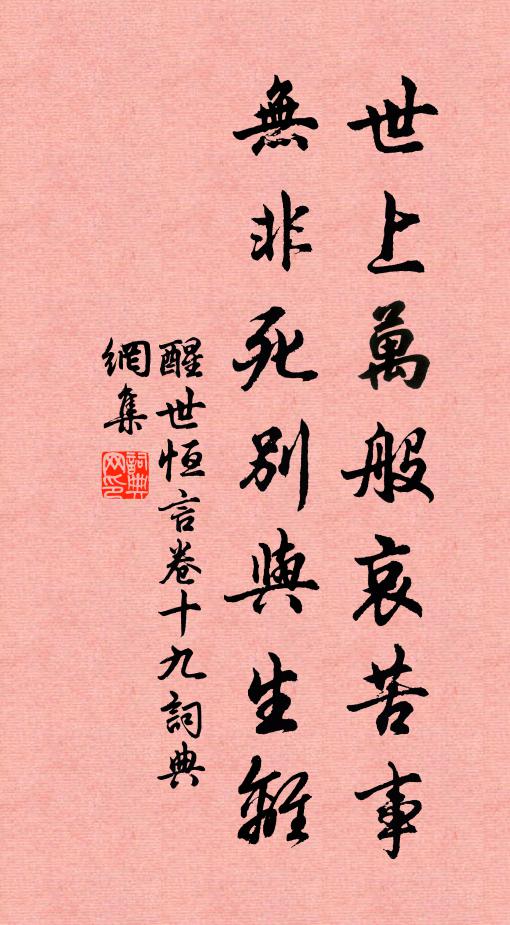 世上萬般哀苦事
無非死別與生離
醒世恒言卷十九詞典
網集
詞典
网印